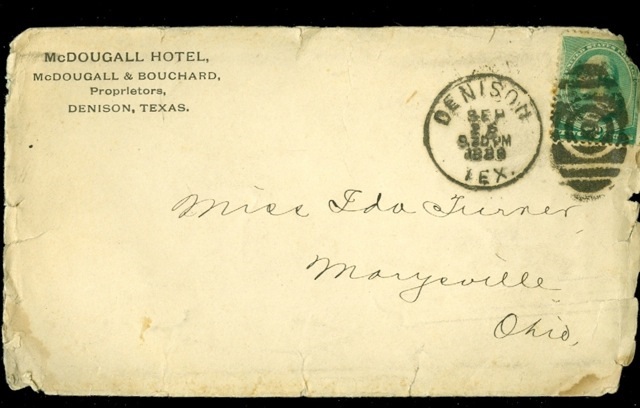 McDOUGALL HOTEL,
McDOUGALL & BOUCHARD,
Proprietors,
DENISON, TEXAS.
DENISON
SEP
PM
TEX.
Miss Ida Turner,
Marysville
Ohio,